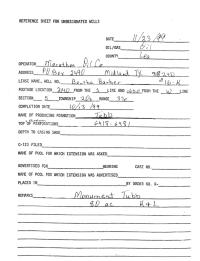 REFERENCE SHEET FOR UNDESIGNATED WELLS
DATE 11/23/99
OIL/GAS Oil
COUNTY Lea
OPERATOR Marathon Oil Co
ADDRESS PO Box 2490 Midland TX
LEASE NAME, WELL NO. Bertha Barber #16-K
FOOTAGE LOCATION FROM THE S LINE AND FROM THE W LINE
SECTION 5 TOWNSHIP 20s RANGE 37e
COMPLETION DATE 10/23/99
NAME OF PRODUCING FORMATION Tubb
TOP OF PERFORATIONS 6418-6481
DEPTH TO CASING SHOE
C-123 FILED
NAME OF POOL FOR WHICH EXTENSION WAS ASKED
ADVERTISED FOR HEARING CASE NO.
NAME OF POOL FOR WHICH EXTENSION WAS ADVERTISED
PLACED IN BY ORDER NO. R-
REMARKS Monument Tubb
80 ac K&L